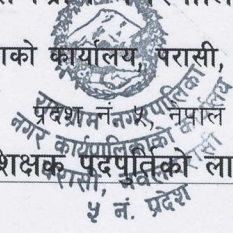 ाको कार्यालय, परासी,
प्रदेश नं. ५, नेपाल
शिक्षक पदपूर्तिको ला
रामग्राम नगरपालिका
नगर कार्यपालिकाको कार्यालय
परासी, नवलपरासी
५ नं. प्रदेश